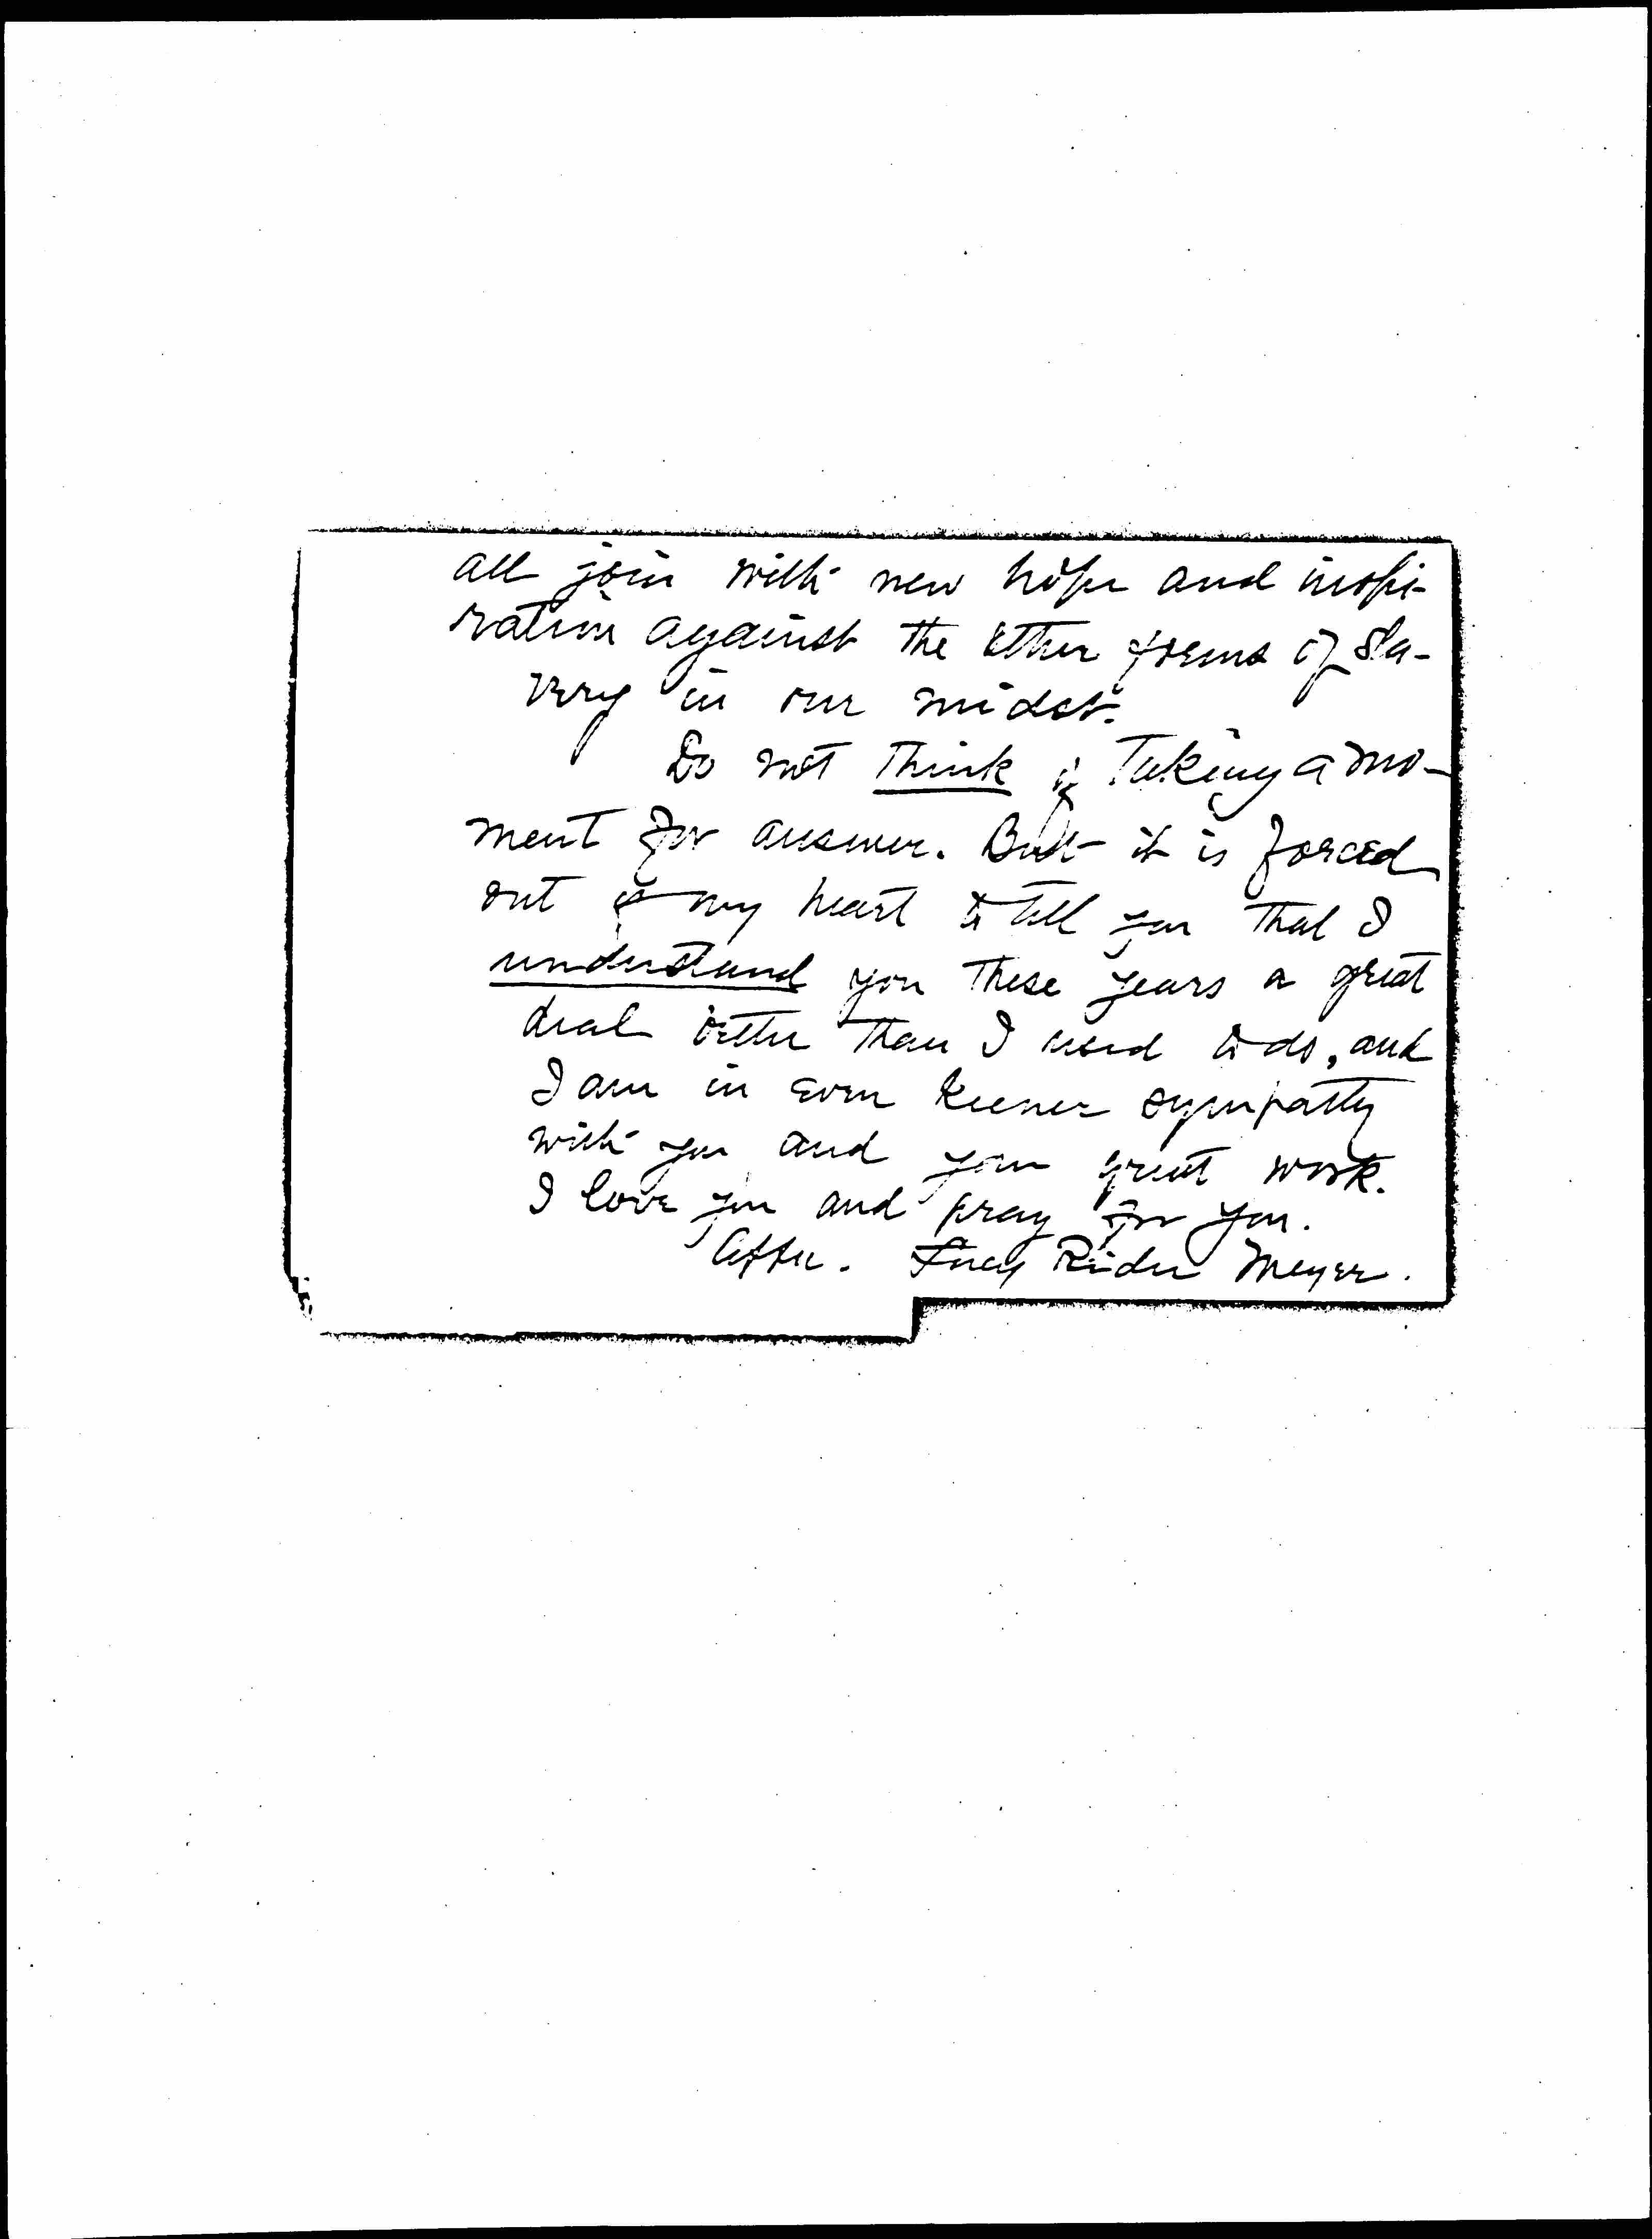 all join with new hope and inspi-
ration against the other forms of sla-
very in our midst.
Do not think of taking a mo-
ment for answer. But it is forced
out of my heart to tell you that I
understand you these years a great
deal better than I used to do, and
I am in even keener sympathy
with you and your great work.
I love you and pray for you.
Affec. Lucy Rider Meyer.